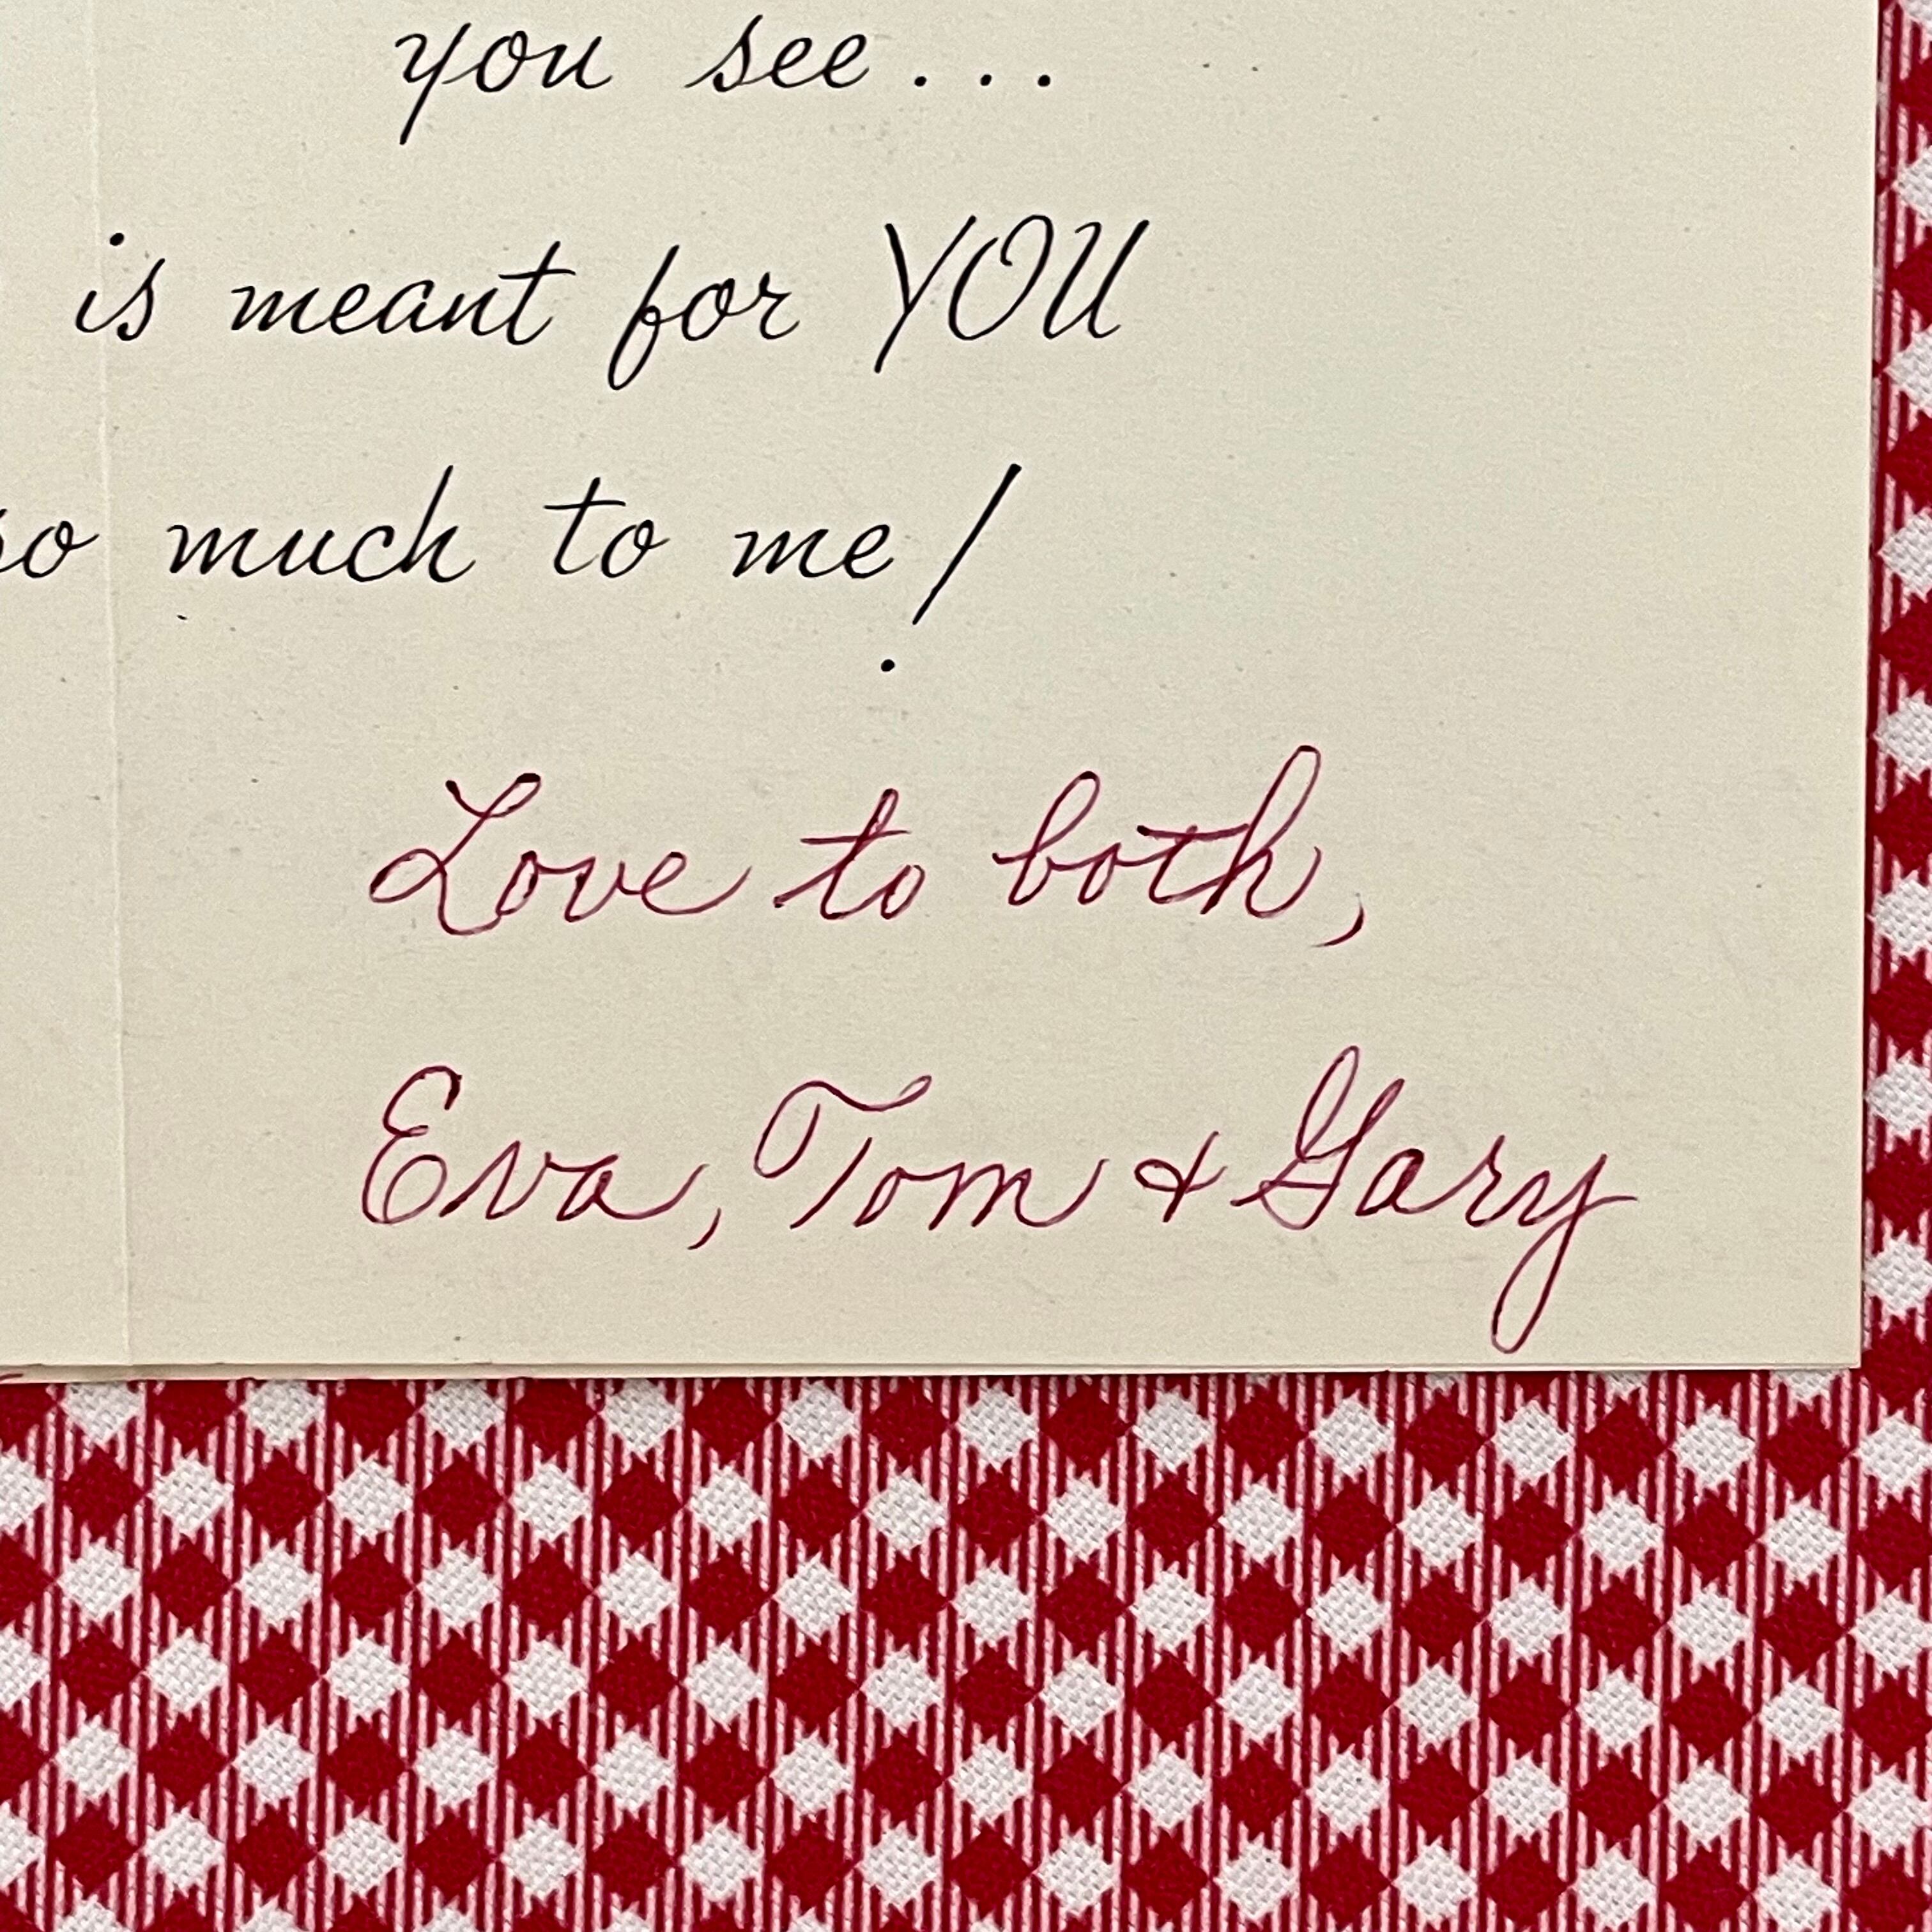 you see...
is meant for YOU
so much to me!
Love to both,
Eva, Tom & Gary